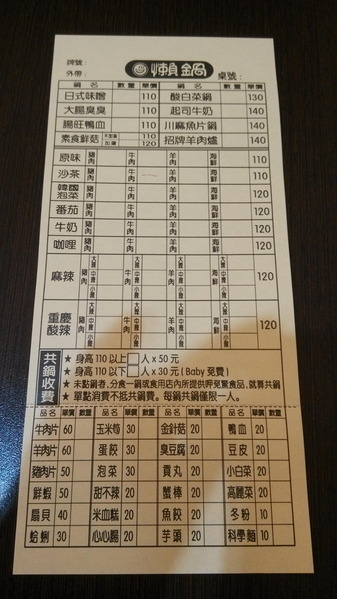 牌號：
外帶：
懶鍋
桌號：
鍋 名 數量 單價 鍋 名 數量 單價
日式味噌 110 酸白菜鍋 130
大腸臭臭 110 起司牛奶 140
腸旺鴨血 110 川麻魚片鍋 140
素食鮮菇 110 120 招牌羊肉爐 140
原味 豬肉 牛肉 羊肉 海鮮 110
沙茶 豬肉 牛肉 羊肉 海鮮 110
韓國泡菜 豬肉 牛肉 羊肉 海鮮 120
番茄 豬肉 牛肉 羊肉 海鮮 120
牛奶 豬肉 牛肉 羊肉 海鮮 120
咖哩 豬肉 牛肉 羊肉 海鮮 120
麻辣 豬肉 大辣 中辣 小辣 牛肉 大辣 中辣 小辣 羊肉 大辣 中辣 小辣 海鮮 大辣 中辣 小辣 120
重慶酸辣 豬肉 大辣 中辣 小辣 牛肉 大辣 中辣 小辣 羊肉 大辣 中辣 小辣 海鮮 大辣 中辣 小辣 120
共鍋收費
★ 身高 110 以上□人 x 50 元
★ 身高 110 以下□人 x 30 元 ( Baby 免費 )
★ 未點鍋者，分食一鍋或食用店內所提供呷兒童食品，就算共鍋
★ 單點消費不抵共鍋費。每鍋共鍋僅限一人。
品名 單價 數量 品名 單價 數量 品名 單價 數量 品名 單價 數量
牛肉片 60 玉米筍 30 金針菇 20 鴨血 20
羊肉片 60 蛋餃 30 臭豆腐 20 豆皮 20
豬肉片 50 泡菜 30 貢丸 20 小白菜 20
鮮蝦 50 甜不辣 20 蟹棒 20 高麗菜 20
扇貝 40 米血糕 20 魚餃 20 冬粉 10
蛤蜊 30 心心腸 20 芋頭 20 科學麵 10